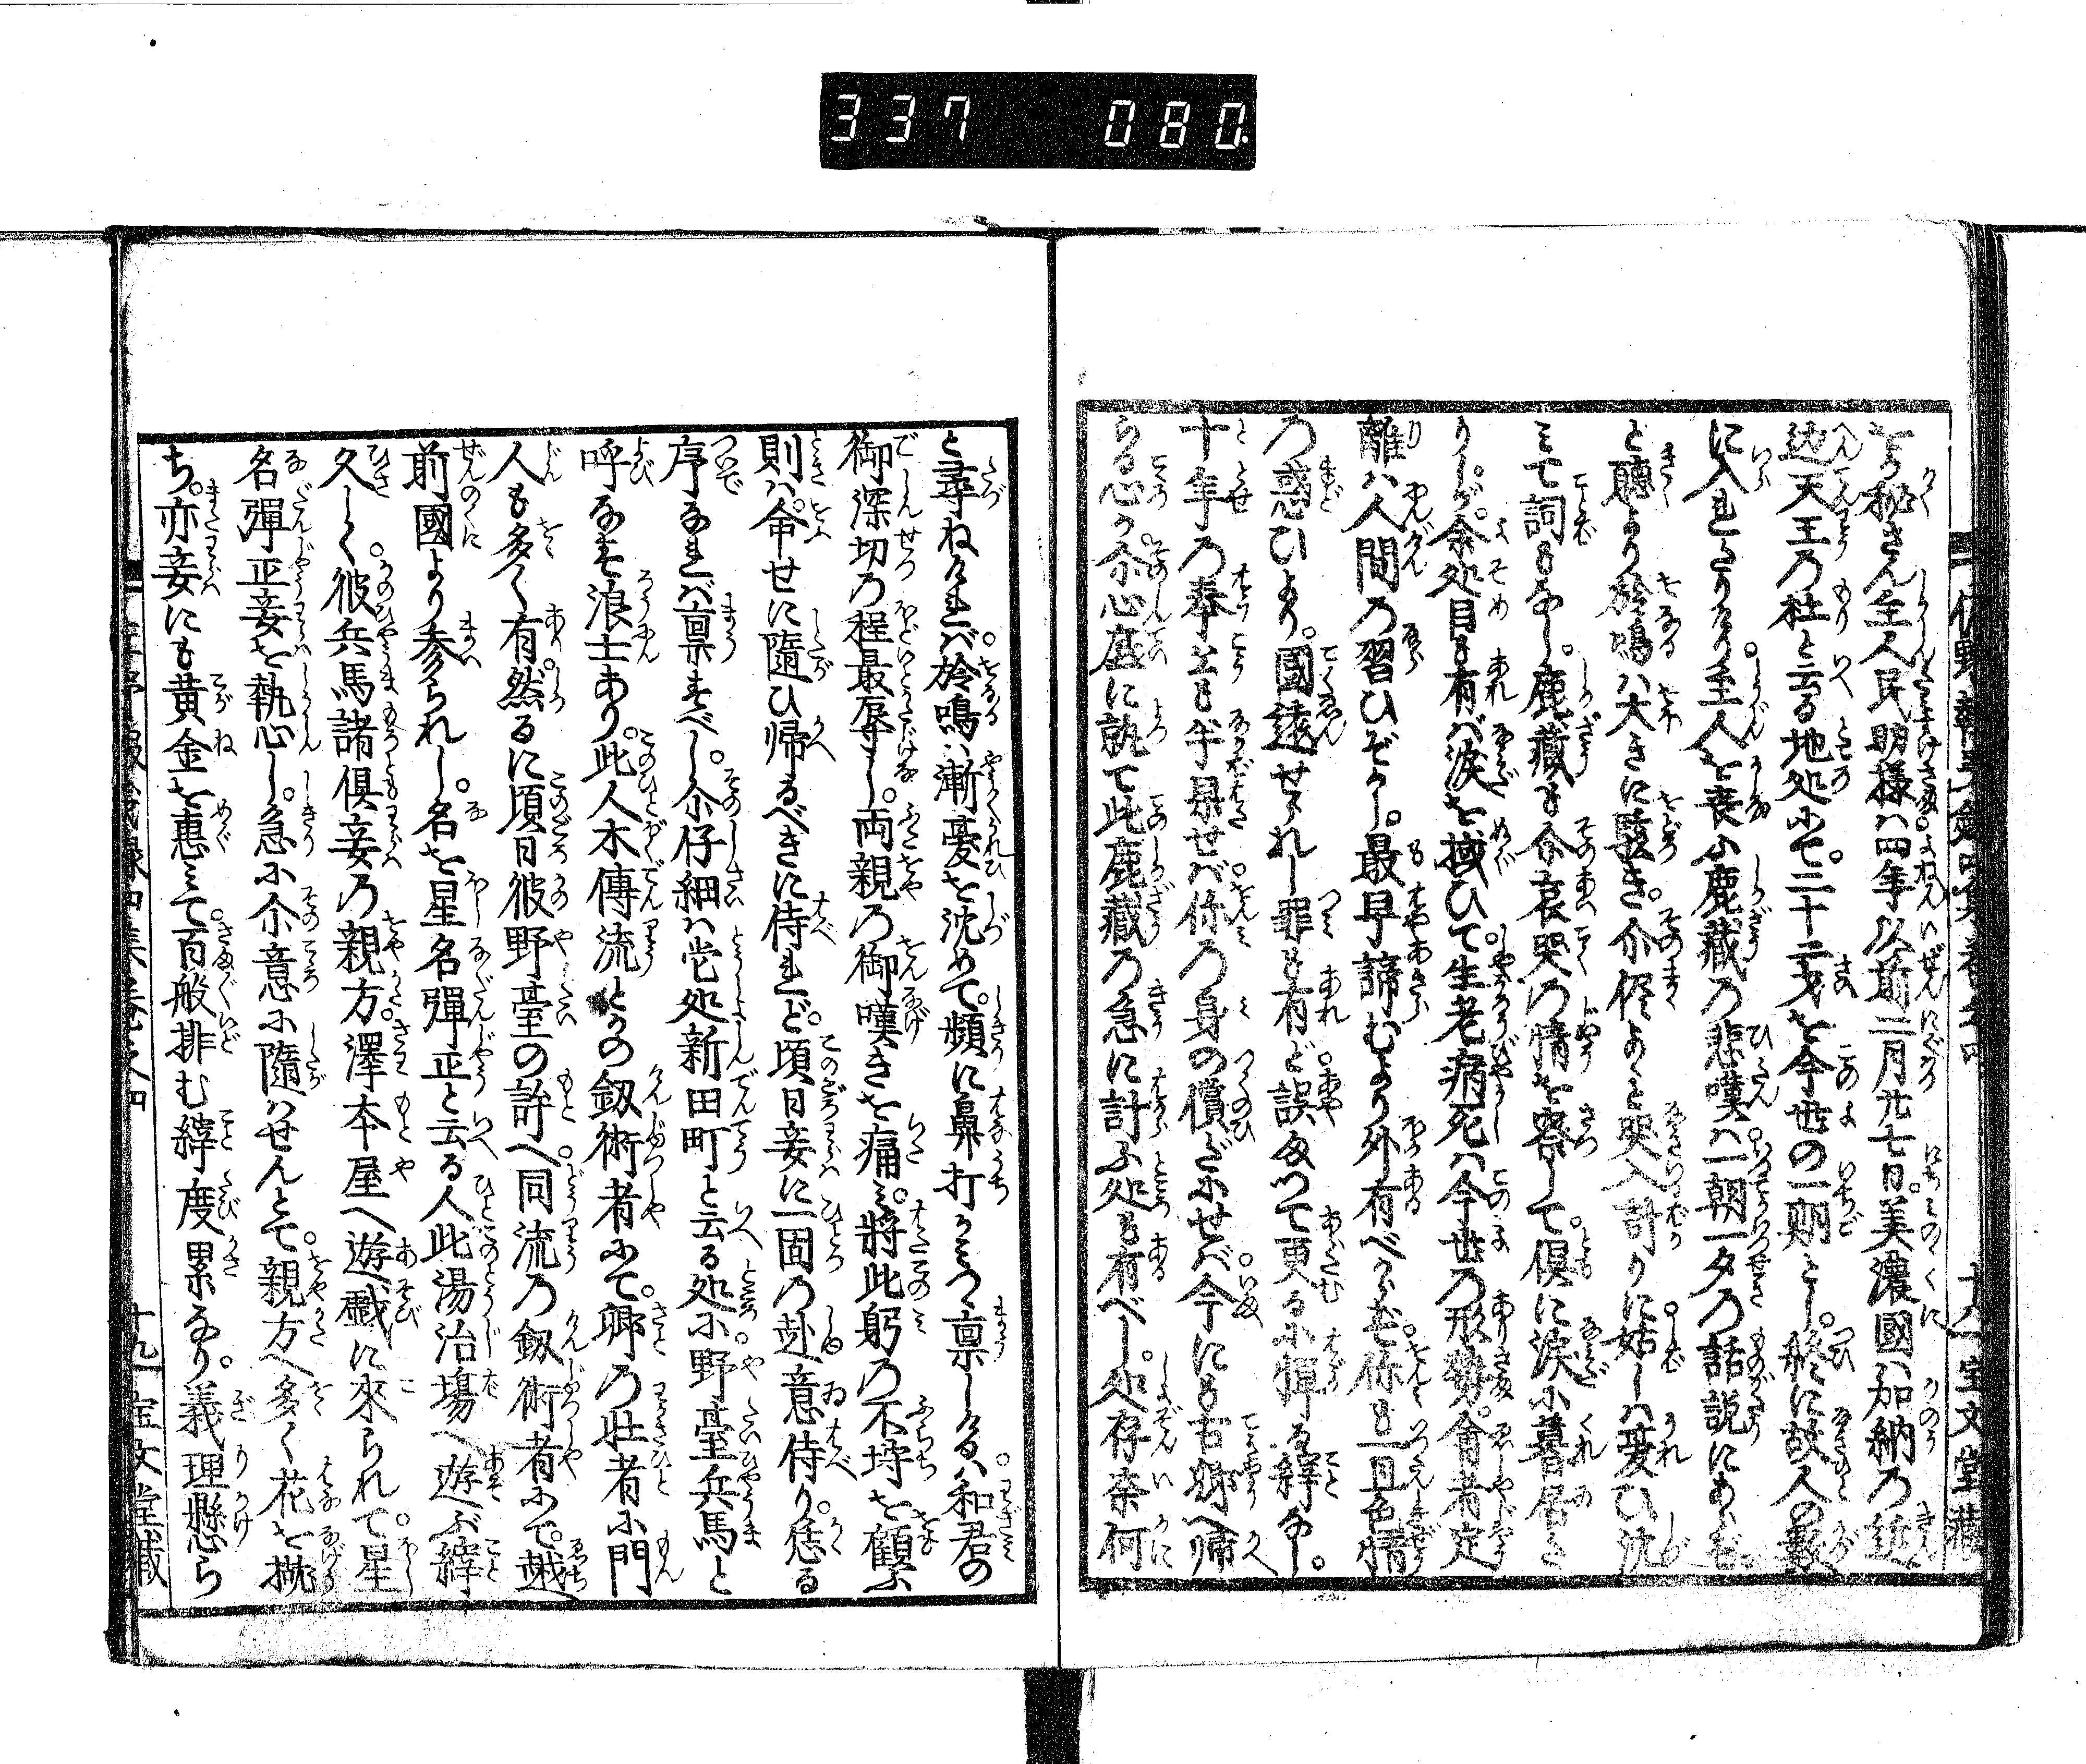 337 080
をり秘さん主人民明様ハ四年以前二月廿七日。美濃國加納乃近
辺天王乃杜と云る地処にて。二十二才を今世の一期とし。終に故人の數
に入れたりけり主人を喪ふ鹿藏乃悲嘆ハ。一朝一夕乃話説にあらず。
と聽より於鳴ハ大きに駭き。介儘よゝと哭入計りに。姑しハ憂ひ沈
ミて詞もなし。鹿藏も介哀哭乃情を察して。倶に涙に暮居た
りしが。余処目も有バ涙を拭ひて。生老病死ハ今世乃形勢。會者定
離ハ人間乃習ひぞかし。最早諦むより外有べからず。你も一旦色情
乃惑ひより。國遠せられし罪も有ど。誤て更る小憚る縡なし。
十年乃奉公も半暴せバ。你乃身の償ださせバ。今にも古郷へ帰
る心か。介心底に就て此鹿藏乃急に計ふ処も有べし。処存奈何
と尋ねけれバ。於鳴ハ漸憂を沈めて。頻に鼻打かミつゝ。禀しけるハ和君の
御深切乃程最辱し。両親乃御嘆きを痛ミ。將此躬乃不埒を顧ふ
則ハ命せに隨ひ帰るべきに侍れど。頃日妾に一固乃赴意侍り。恁る
序なれバ禀すべし。介仔細ハ当処新田町と云る処小。野臺兵馬と
呼なす浪士あり。此人木傳流とかの劔術者にて。郷乃壮者小門
人も多く有。然るに頃日彼野臺の許へ。同流乃劔術者にて。越
前國より参られし。名を星名彈正と云る人此湯治塲へ遊ぶ縡
久しく。彼兵馬諸倶妾乃親方。澤本屋へ遊戯に來られて。星
名彈正妾を執心し。急小介意小隨ハせんとて。親方へ多く花を抛
ち。亦妾にも黄金を惠ミて。百般排む縡度累なり。義理懸ら
十九 宝文堂藏